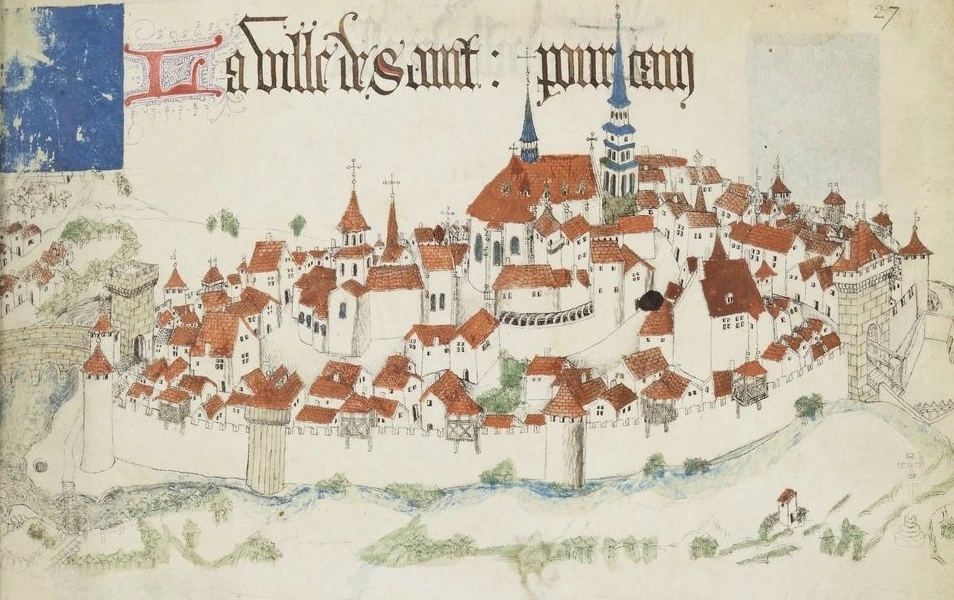 La ville de Sant : pourcain
27